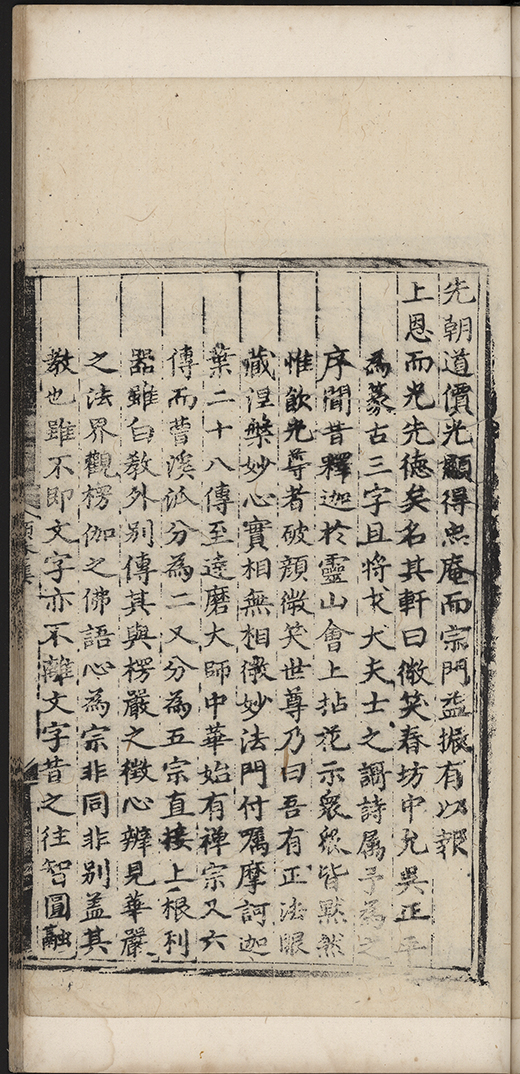 先朝道價光顯得忠庵而宗門益振有以報
上恩而光先德矣名其軒曰微笑春坊中允吳正平
為篆古三字且将求大夫士之謌詩属予為之
序間昔釋迦於靈山會上拈花示衆衆皆默然
惟飲光尊者破顔微笑世尊乃曰吾有正法眼
蔵涅槃妙心實相無相微妙法門付嘱摩訶迦
葉二十八傳至達磨大師中華始有禅宗又六
傳而曹溪派分為二又分為五宗直接上根利
器雖白教外别傳其與楞嚴之徵心辨見華嚴
之法界觀楞伽之佛語心為宗非同非别盖其
教也雖不即文字亦不離文字昔之往智圓融